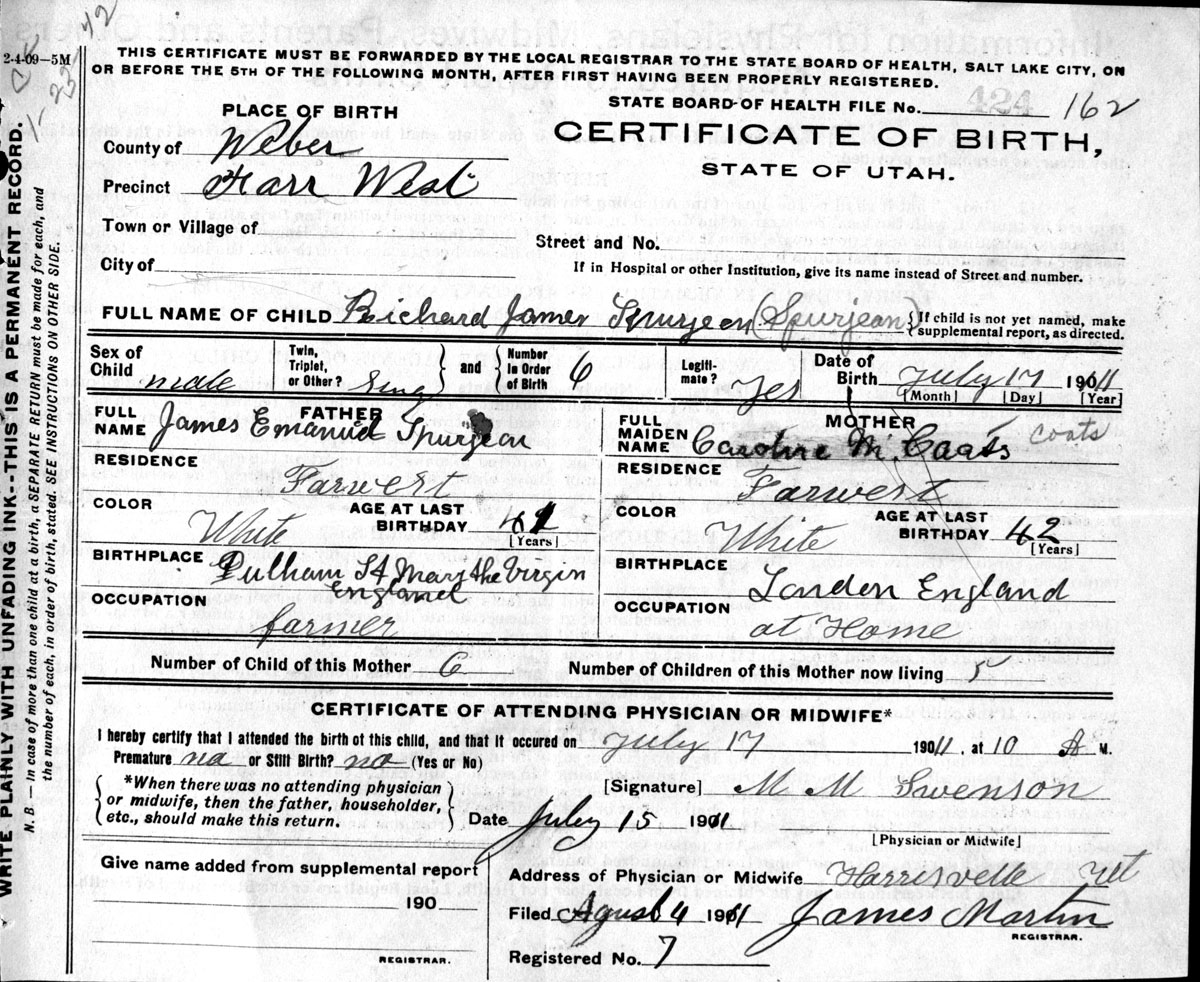 2-4-09—5M
THIS CERTIFICATE MUST BE FORWARDED BY THE LOCAL REGISTRAR TO THE STATE BOARD OF HEALTH, SALT LAKE CITY, ON
OR BEFORE THE 5TH OF THE FOLLOWING MONTH, AFTER FIRST HAVING BEEN PROPERLY REGISTERED.
WRITE PLAINLY WITH UNFADING INK--THIS IS A PERMANENT RECORD.
N. B.—In case of more than one child at a birth, a SEPARATE RETURN must be made for each, and
the number of each, in order of birth, stated. SEE INSTRUCTIONS ON OTHER SIDE.
PLACE OF BIRTH
STATE BOARD OF HEALTH FILE No. 162
County of Weber
CERTIFICATE OF BIRTH,
STATE OF UTAH.
Precinct Farr West
Town or Village of
Street and No.
City of
If in Hospital or other Institution, give its name instead of Street and number.
FULL NAME OF CHILD Richard James Spurgeon (Spurjean) {If child is not yet named, make
supplemental report, as directed.
Sex of Child male
Twin, Triplet, or Other? Sing } and { Number In Order of Birth 6
Legitimate? Yes
Date of Birth July 17 1911
[Month] [Day] [Year]
FATHER
FULL NAME James Emanuel Spurgeon
MOTHER
FULL MAIDEN NAME Caroline M. Caats Coats
RESIDENCE Farwest
RESIDENCE Farwest
COLOR White AGE AT LAST BIRTHDAY 42 [Years]
COLOR White AGE AT LAST BIRTHDAY 42 [Years]
BIRTHPLACE Pulham St Mary the Virgin
England
BIRTHPLACE London England
OCCUPATION farmer
OCCUPATION at Home
Number of Child of this Mother 6 Number of Children of this Mother now living 5
CERTIFICATE OF ATTENDING PHYSICIAN OR MIDWIFE*
I hereby certify that I attended the birth of this child, and that it occured on July 17 1911, at 10 A M.
Premature no or Still Birth? no (Yes or No)
*When there was no attending physician
or midwife, then the father, householder,
etc., should make this return.
[Signature] M M Swenson
Date July 15 1911
[Physician or Midwife]
Give name added from supplemental report
190
REGISTRAR.
Address of Physician or Midwife Harrisvelle Ut
Filed Agust 4 1911 James Martin
REGISTRAR.
Registered No. 7